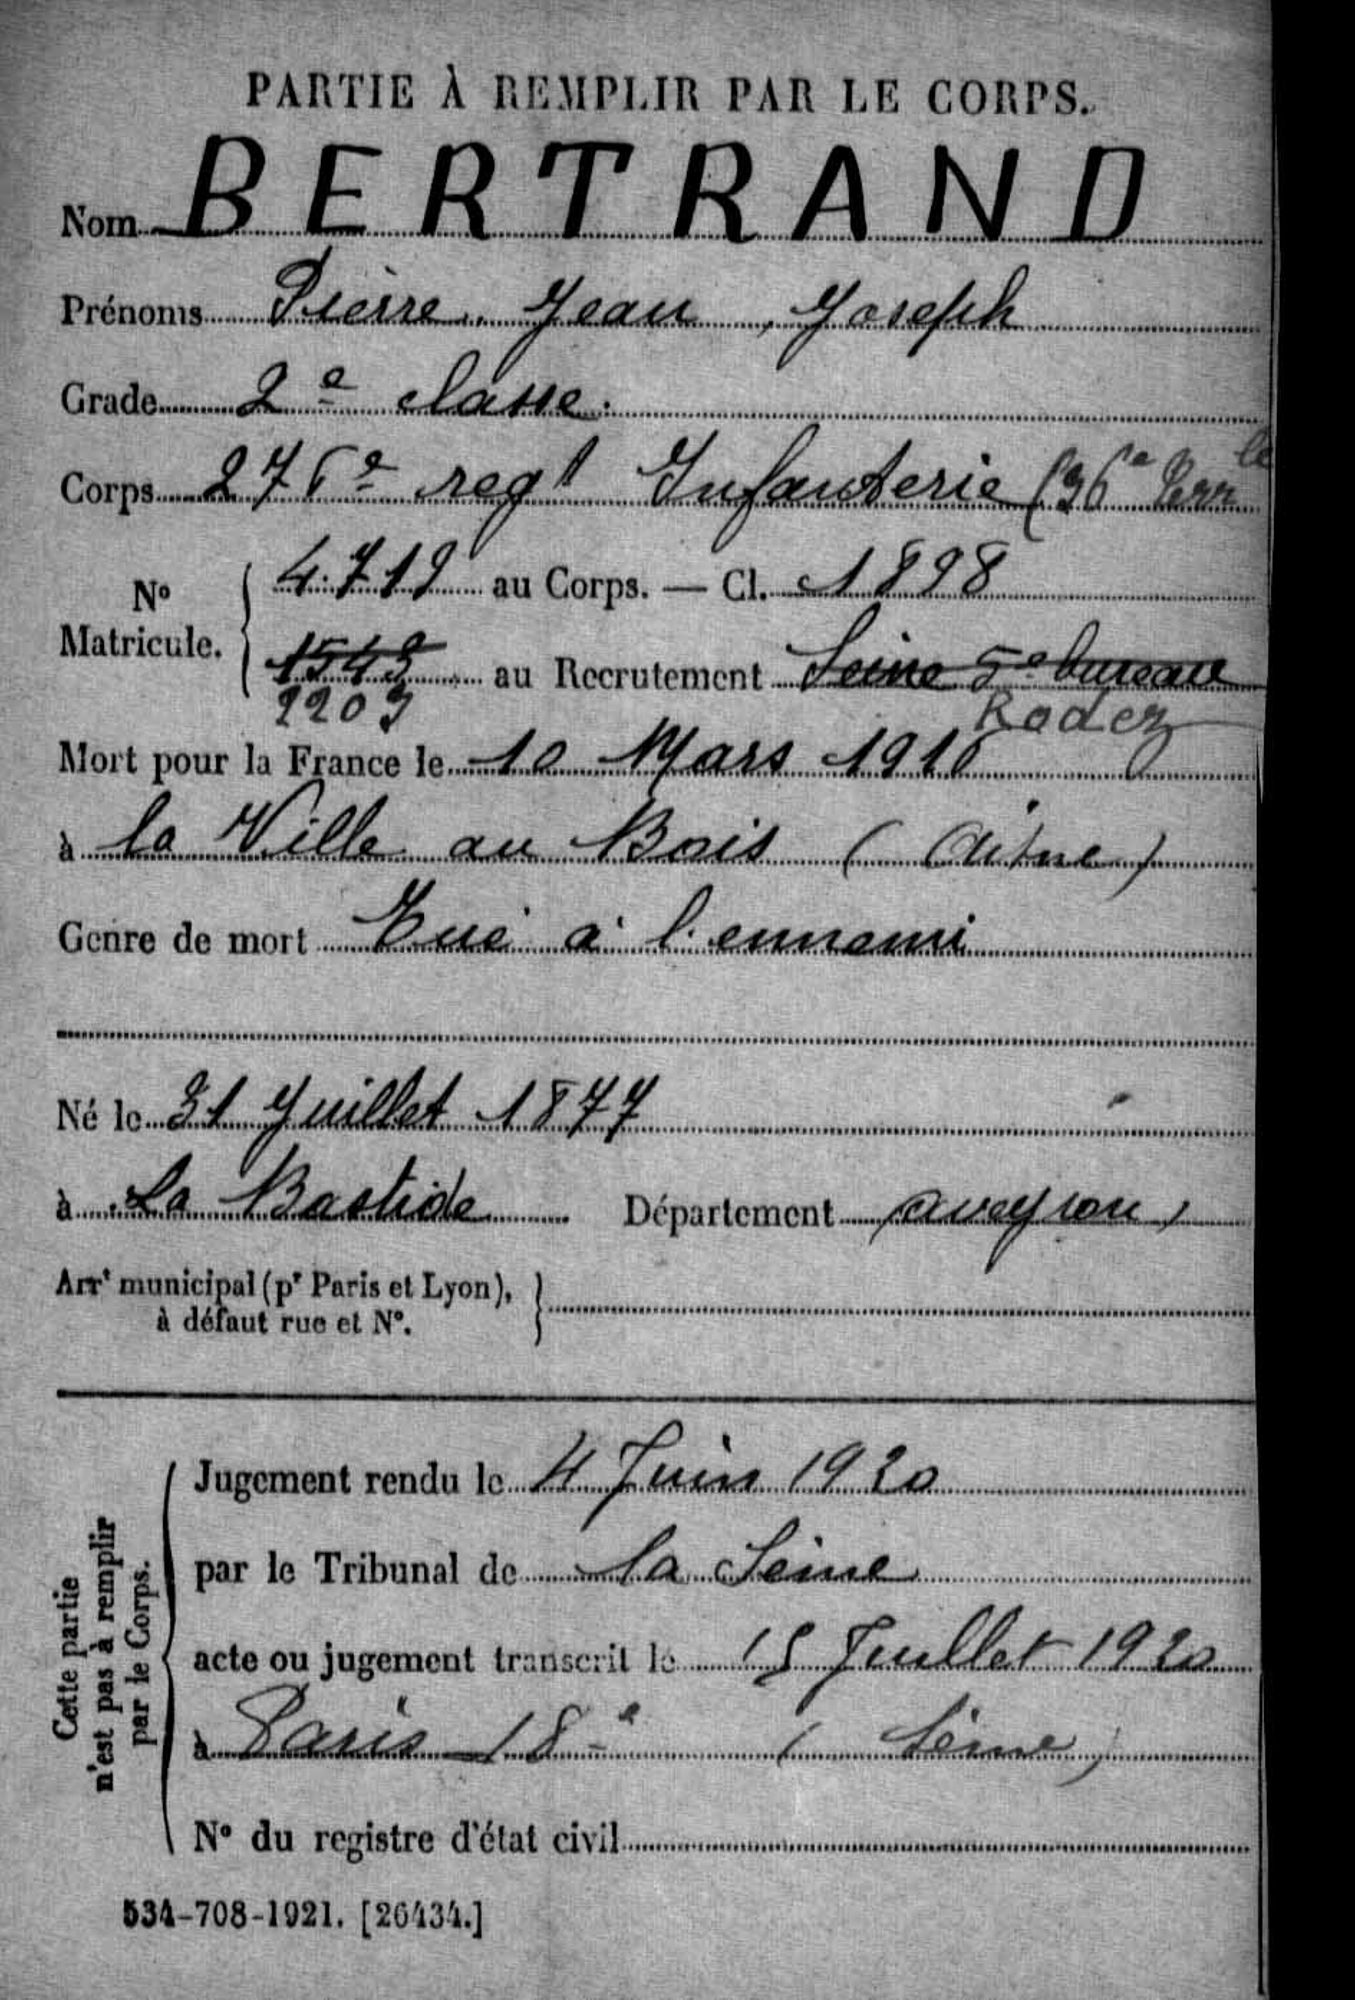 PARTIE À REMPLIR PAR LE CORPS.
Nom BERTRAND
Prénoms Pierre, Jean, Joseph
Grade 2e classe.
Corps 276e regt Infanterie (36e Terrle
No Matricule. 4.719 au Corps. — Cl. 1898
1543 au Recrutement Seine 5e bureau
2203 Rodez
Mort pour la France le 10 Mars 1916
à la Ville au Bois (Aisne)
Genre de mort Tué à l'ennemi
Né le 31 Juillet 1877
à La Bastide Département aveyron
Arrt municipal (pr Paris et Lyon),
à défaut rue et No.
Cette partie
n'est pas à remplir
par le Corps.
Jugement rendu le 4 Juin 1920
par le Tribunal de la Seine
acte ou jugement transcrit le 15 Juillet 1920
à Paris 18e (Seine)
No du registre d'état civil
534-708-1921. [26434.]